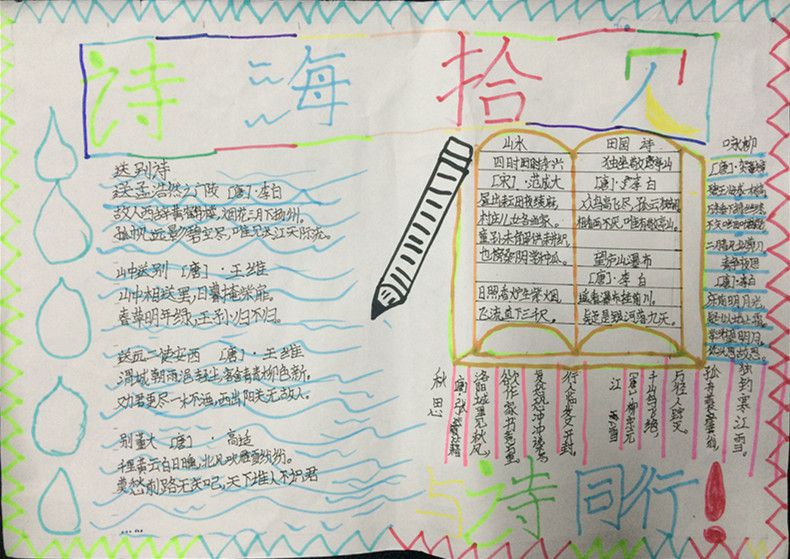 诗海拾贝
送别诗
送孟浩然之广陵 [唐]·李白
故人西辞黄鹤楼,烟花三月下扬州。
孤帆远影碧空尽,唯见长江天际流。
山中送别 [唐]·王维
山中相送罢,日暮掩柴扉。
春草明年绿,王孙归不归。
送元二使安西 [唐]·王维
渭城朝雨浥轻尘,客舍青青柳色新。
劝君更尽一杯酒,西出阳关无故人。
别董大 [唐]·高适
千里黄云白日曛,北风吹雁雪纷纷。
莫愁前路无知己,天下谁人不识君
山水
四时田园杂兴
[宋]·范成大
昼出耘田夜绩麻,
村庄儿女各当家。
童孙未解供耕织,
也傍桑阴学种瓜。
日照香炉生紫烟,
飞流直下三千尺,
田园诗
独坐敬亭山
[唐]·李白
众鸟高飞尽,孤云独去闲。
相看两不厌,唯有敬亭山。
望庐山瀑布
[唐]·李白
遥看瀑布挂前川。
疑是银河落九天。
咏柳
[唐]·贺知章
碧玉妆成一树高,
万条垂下绿丝绦。
不知细叶谁裁出,
二月春风似剪刀
静夜思
[唐]·李白
床前明月光,
疑是地上霜。
举头望明月,
低头思故乡。
秋思
[唐]·张籍
洛阳城里见秋风,
欲作家书意万重。
复恐匆匆说不尽,
行人临发又开封。
江雪
[唐]·柳宗元
千山鸟飞绝,
万径人踪灭。
孤舟蓑笠翁,
独钓寒江雪。
与诗同行!